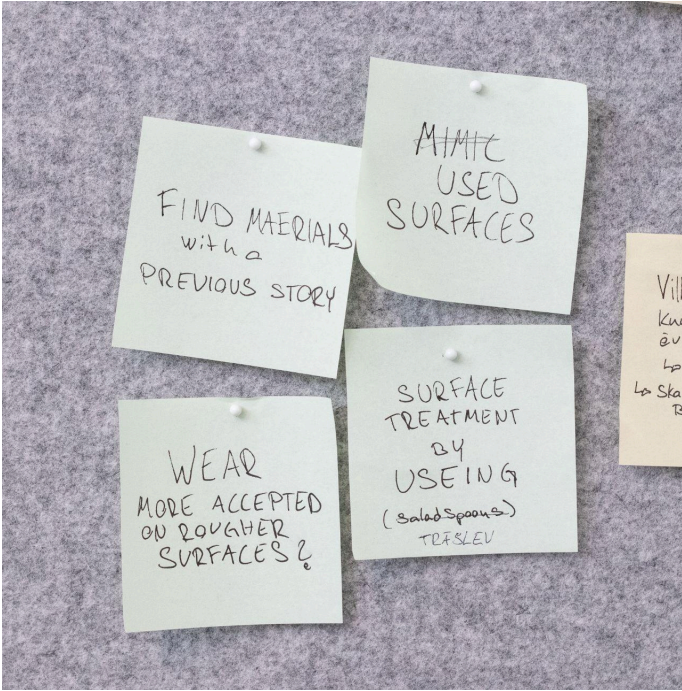 FIND MAERIALS
with a
PREVIOUS STORY
MIMIC
USED
SURFACES
WEAR
MORE ACCEPTED
ON ROUGHER
SURFACES?
SURFACE
TREATMENT
BY
USEING
(salad spoons)